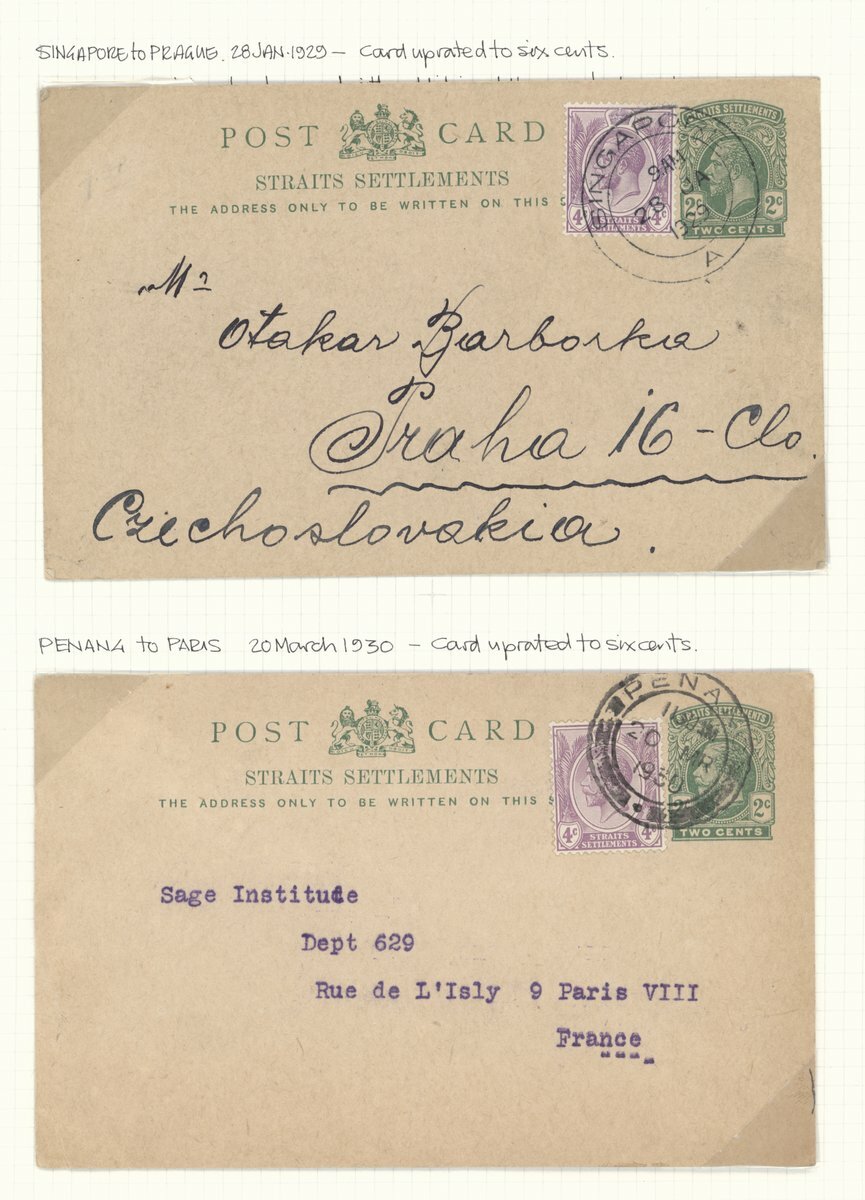 SINGAPORE to PRAGUE. 28 JAN. 1929 — Card uprated to six cents.
POST CARD
STRAITS SETTLEMENTS
THE ADDRESS ONLY TO BE WRITTEN ON THIS S
4c STRAITS SETTLEMENTS 4c
STRAITS SETTLEMENTS
2c 2c
TWO CENTS
SINGAPORE
9 AM
28 JA
1929
A
Mr
Otakar Barborka
Praha 16 - Clo.
Czechoslovakia.
PENANG to PARIS 20 March 1930 — Card uprated to six cents.
POST CARD
STRAITS SETTLEMENTS
THE ADDRESS ONLY TO BE WRITTEN ON THIS S
4c STRAITS SETTLEMENTS 4c
STRAITS SETTLEMENTS
2 2c
TWO CENTS
PENA
11 AM
20 MR
1930
Sage Institude
Dept 629
Rue de L'Isly 9 Paris VIII
France